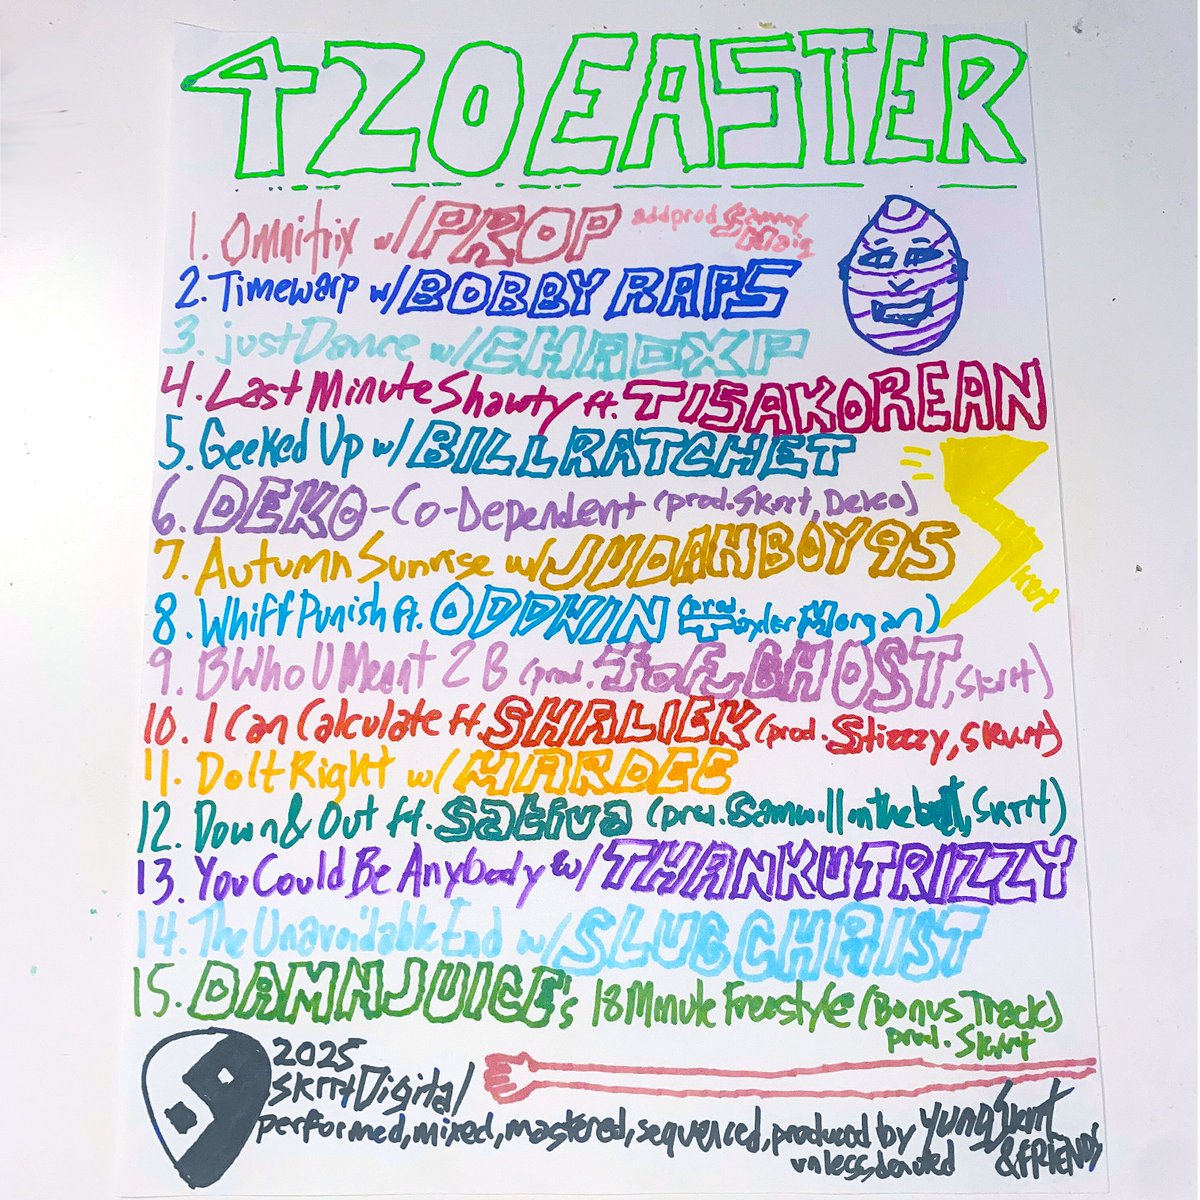 420EASTER
1. Omnitrix w/ PROP addprod Sammy Haig
2. Timewarp w/ BOBBY RAPS
3. justDance w/ CHADXP
4. Last Minute Shawty ft. TISAKOREAN
5. Geeked Up w/ BILLRATCHET
6. DEKO-Co-Dependent (prod. Skrrt, Deko)
7. Autumn Sunrise w/ JUDAHBOY95
8. Whiff Punish ft. ODDWIN (prod. Taylor Morgan)
9. B Who U Meant 2 B (prod. GHOST, Skrrt)
10. I Can Calculate ft. SHALIEK (prod. Stizzzy, Skrrt)
11. Do It Right w/ MARDEE
12. Down & Out ft. Sativa (prod. Samwill on the beat, Skrrt)
13. You Could Be Anybody w/ THANKUTRIZZY
14. The Unavoidable End w/ SLUG CHRIST
15. DAMNJUICE's 18 Minute Freestyle (Bonus Track)
prod. Skrrt
Skrrt
2025
SkrrtDigital
performed, mixed, mastered, sequenced, produced by yung Skrrt
unless denoted & FRIENDS